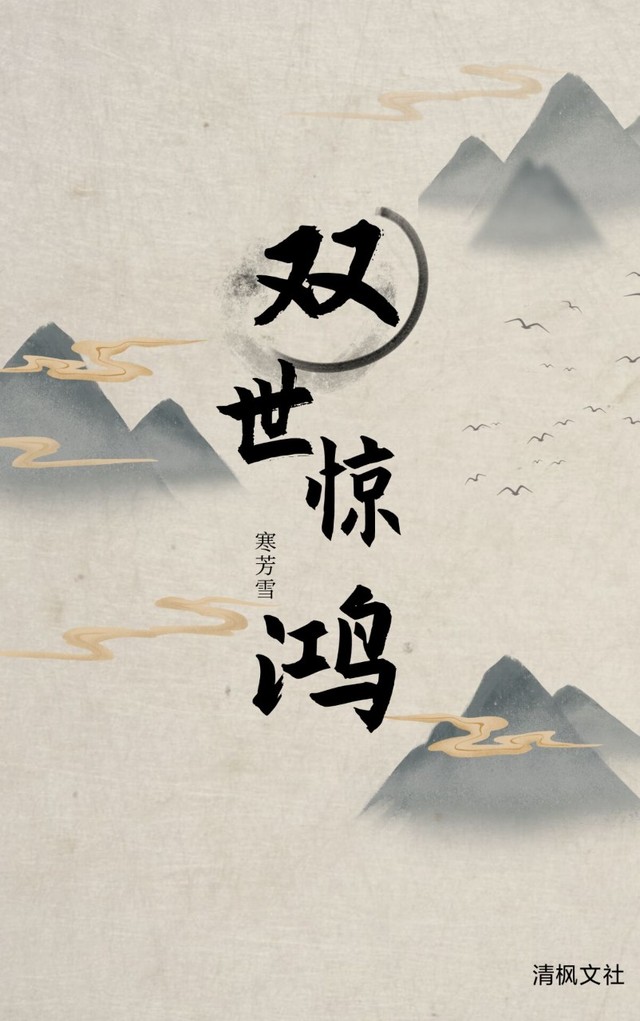 双世惊鸿
寒芳雪
清枫文社